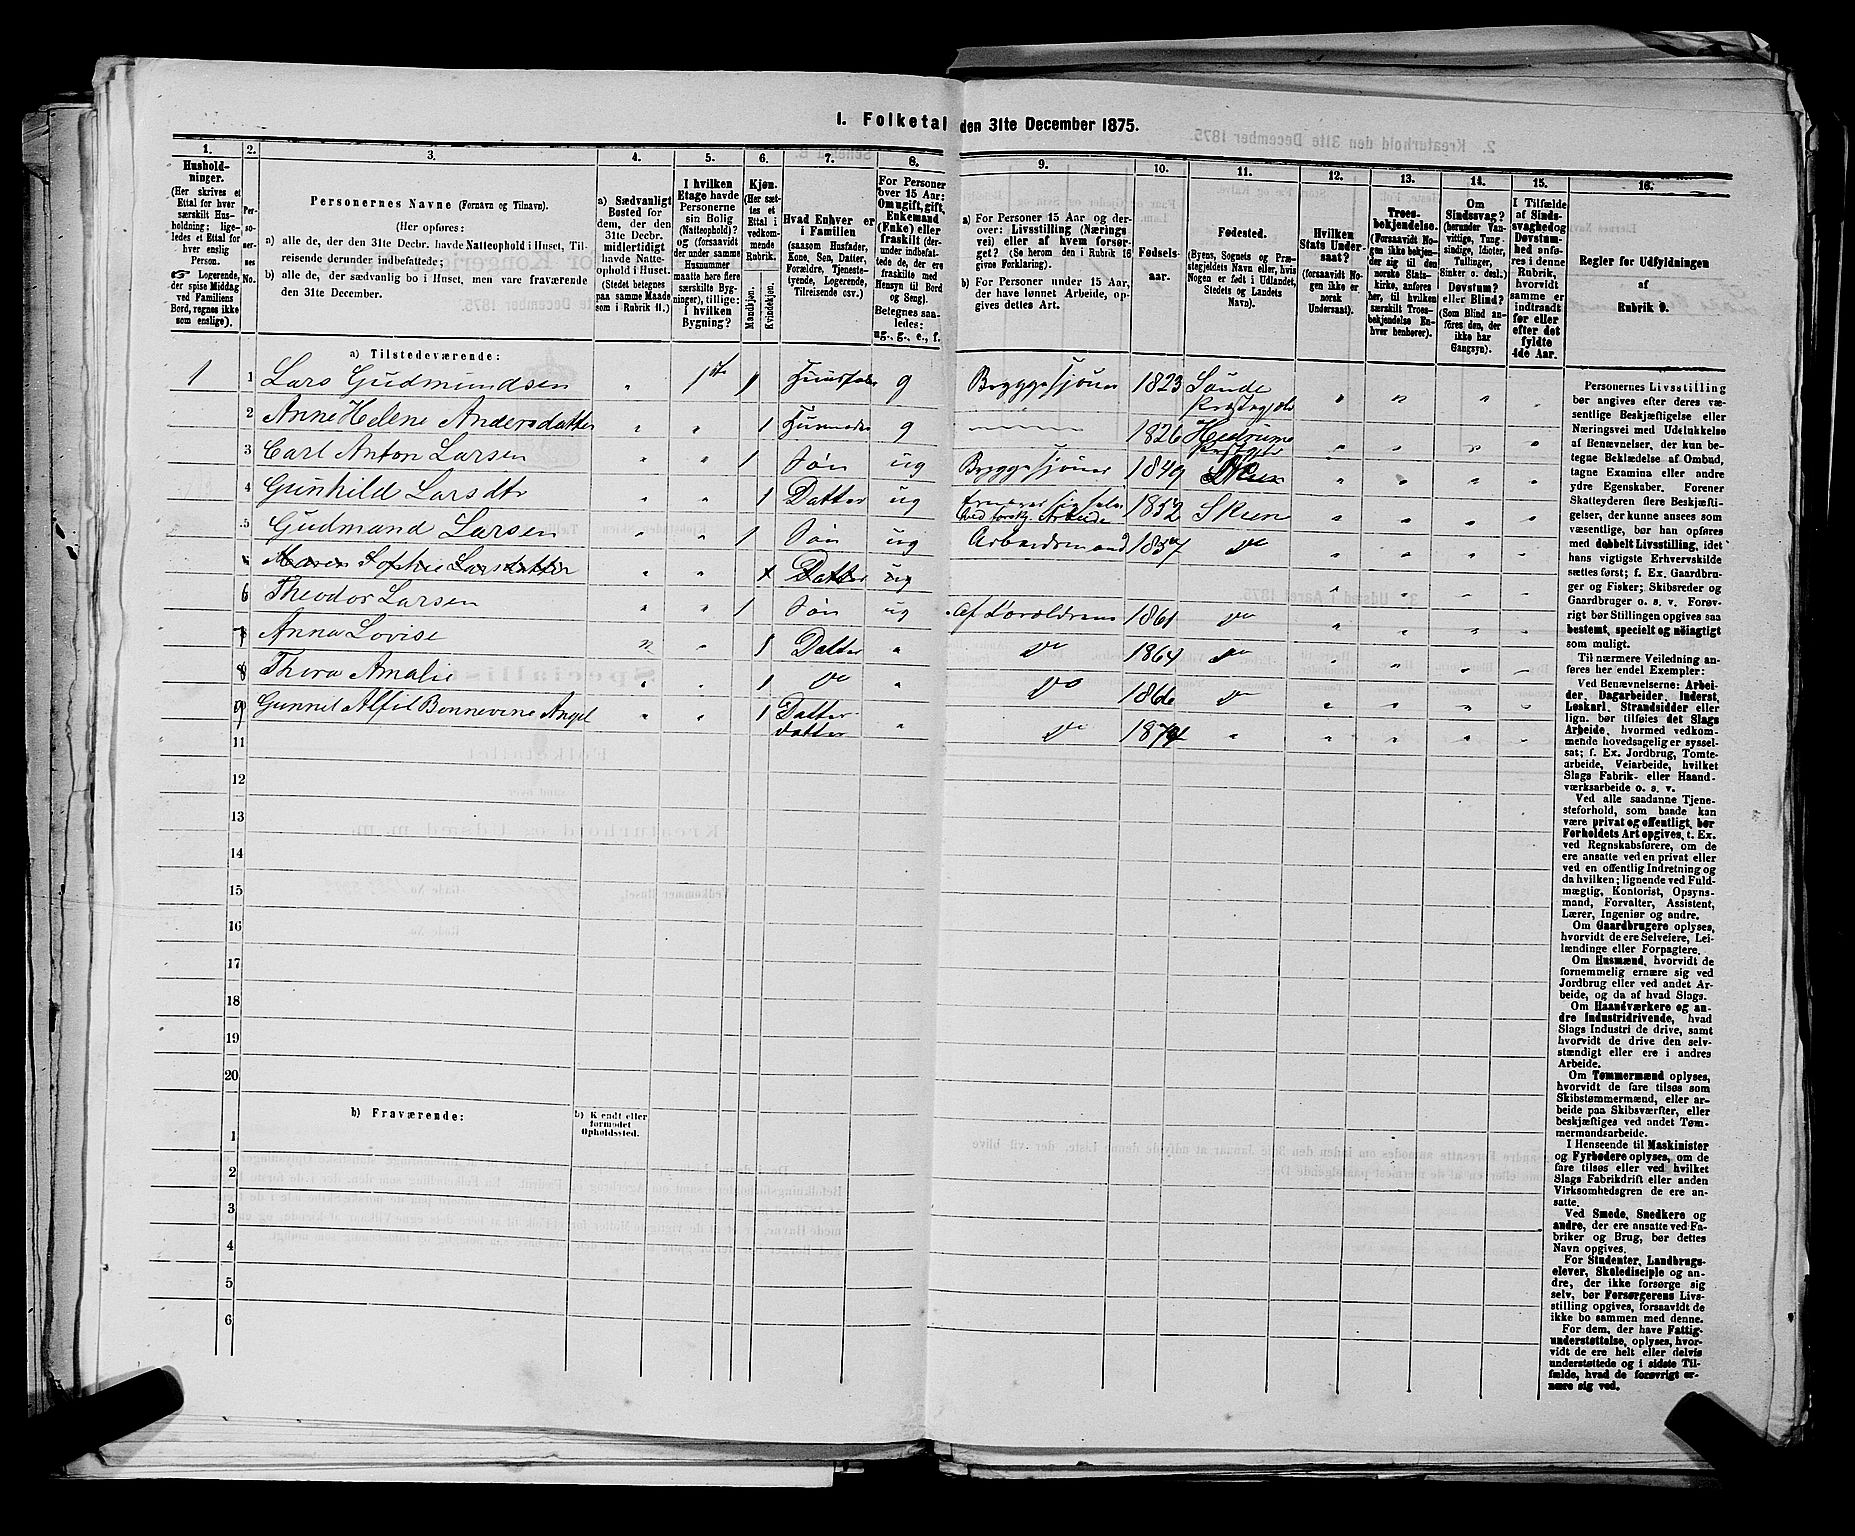 I. Folketal den 31te December 1875.
1. 2. 3. 4. 5. 6. 7. 8. 9. 10. 11. 12. 13. 14. 15. 16.
Hushold-
ninger.
(Her skrives et
Ettal for hver
særskilt Hus-
holdning; lige-
ledes et Ettal for
hver enslig
Person.
☞ Logerende,
der spise Middag
ved Familiens
Bord, regnes ikke
som enslige).
Per-
so-
ner-
nes
No.
Personernes Navne (Fornavn og Tilnavn).
(Her opføres:
a) alle de, der den 31te Decbr. havde Natteophold i Huset, Til-
reisende derunder indbefattede;
b) alle de, der sædvanlig bo i Huset, men vare fraværende
den 31te December.
a) Sædvanligt
Bosted for
dem, der den
31te Decbr.
midlertidigt
havde Natte-
ophold i Huset.
(Stedet betegnes
paa samme Maade
som i Rubrik 11.)
I hvilken
Etage havde
Personerne
sin Bolig
(Natteophold)?
og (forsaavidt
der under samme
Husnummer
maatte høre flere
særskilte Byg-
ninger), tillige:
i hvilken
Bygning?
Kjøn.
(Her sæt-
tes et
Ettal i
vedkom-
mende
Rubrik.
Mandkjøn.
Kvindekjøn.
Hvad Enhver er
i Familien
(saasom Husfader,
Kone, Søn, Datter,
Forældre, Tjeneste-
tyende, Logerende,
Tilreisende osv.)
For Personer
over 15 Aar:
Om ugift, gift,
Enkemand
(Enke) eller
fraskilt (der-
under indbefat-
tede de, der ere
fraskilte med
Hensyn til Bord
og Seng).
Betegnes saa-
ledes:
ug., g., e., f.
a) For Personer 15 Aar og der-
over: Livsstilling (Nærings-
vei) eller af hvem forsør-
get? (Se herom den i Rubrik 16
givne Forklaring).
b) For Personer under 15 Aar,
der have lønnet Arbeide, op-
gives dettes Art.
Fødsels-
aar.
Fødested.
(Byens, Sognets og Præ-
stegjeldets Navn eller, hvis
Nogen er født i Udlandet,
Stedets og Landets
Navn).
Hvilken
Stats Under-
saat?
(forsaavidt No-
gen ikke er
norsk
Undersaat).
Troes-
bekjendelse.
(Forsaavidt No-
gen ikke bekjen-
der sig til den
norske Stats-
kirke, anføres
her, til hvilken
særskilt Troes-
bekjendelse En-
hver henhører).
Om
Sindssvag?
(herunder Van-
vittige, Tung-
sindige, Idioter,
Tullinger,
Sinker o. desl.)
Døvstum?
eller Blind?
(Som Blind an-
føres den, der
ikke har
Gangsyn).
I Tilfælde
af Sinds-
svaghed og
Døvstum-
hed anfø-
res i denne
Rubrik,
hvorvidt
samme er
indtraadt
før eller
efter det
fyldte
4de Aar.
Regler for Udfyldningen
af
Rubrik 9.
a) Tilstedeværende:
1 1 Lars Gudmundsen „ 1ste 1 Huusfader g Bryggesjouer 1823 Sande Præstegjeld
2 Anne Helene Andersdatter „ „ 1 Huusmoder g 1826 Hedrum Præstgjeld
3 Carl Anton Larsen „ „ 1 Søn ug Bryggesjouer 1849 Skien
4 Gunhild Larsdtr „ „ 1 Datter ug Ernærer sig selv ved forskj. Arbeide 1852 Skien
5 Gudmand Larsen „ „ 1 Søn ug Arbeidsmand 1857 do
Maren Sophie Larsdatter „ „ Datter ug
6 Theodor Larsen „ „ 1 Søn ug Af Forældrene 1861 do
7 Anna Lovise „ 1 Datter „ do 1864 do
8 Thora Amalie „ „ 1 do „ do 1866 do
9 Gunnel Alfil Bonnevine Angel „ „ 1 Datter Datter „ do 1874 „
11
12
13
14
15
16
17
18
19
20
b) Fraværende:
b) Kjendt eller
formodet
Opholdssted.
1
2
3
4
5
6
Personernes Livsstilling
bør angives efter deres væ-
sentlige Beskjæftigelse eller
Næringsvei med Udelukkelse
af Benævnelser, der kun be-
tegne Beklædelse af Ombud,
tagne Examina eller andre
ydre Egenskaber. Forener
Skatteyderen flere Beskjæfti-
gelser, der kunne ansees som
væsentlige, bør han opføres
med dobbelt Livsstilling, idet
hans vigtigste Erhvervskilde
sættes først; f. Ex. Gaardbru-
ger og Fisker; Skibsreder og
Gaardbruger o. s. v. Forøv-
rigt bør Stillingen opgives saa
bestemt, specielt og nöiagtigt
som muligt.
Til nærmere Veiledning an-
føres her endel Exempler:
Ved Benævnelserne: Arbei-
der, Dagarbeider, Inderst,
Løskarl, Strandsidder eller
lign. bør tilføies det Slags
Arbeide, hvormed vedkom-
mende hovedsagelig er syssel-
sat; f. Ex. Jordbrug, Tomte-
arbeide, Veiarbeide, hvilket
Slags Fabrik- eller Haand-
værksarbeide o. s. v.
Ved alle saadanne Tjene-
steforhold, som baade kan
være privat og offentligt, bør
Forholdets Art opgives, t. Ex.
ved Regnskabsførere, om de
ere ansatte ved en privat eller
ved en offentlig Indretning og
da hvilken; lignende ved Fuld-
mægtig, Kontorist, Opsyns-
mand, Forvalter, Assistent,
Lærer, Ingeniør og andre.
Om Gaardbrugere oplyses,
hvorvidt de ere Selveiere, Lei-
lændinge eller Forpagtere.
Om Husmænd, hvorvidt de
fornemmelig ernære sig ved
Jordbrug eller ved andet Ar-
beide, og da af hvad Slags.
Om Haandværkere og an-
dre Industridrivende, hvad
Slags Industri de drive, samt
hvorvidt de drive den selv-
stændigt eller ere i andres
Arbeide.
Om Tømmermænd oplyses,
hvorvidt de fare tilsøs som
Skibstømmermænd, eller ar-
beide paa Skibsværfter, eller
beskjæftiges ved andet Tøm-
mermandsarbeide.
I Henseende til Maskinister
og Fyrbødere oplyses, om de
fare tilsøs eller ved hvilket
Slags Fabrikdrift eller anden
Virksomhedsgren de ere an-
satte.
Ved Smede, Snedkere og
andre, der ere ansatte ved Fa-
briker og Brug, bør dettes
Navn opgives.
For Studenter, Landbrugs-
elever, Skoledisciple og an-
dre, der ikke forsørge sig
selv, bør Forsørgerens Livs-
stilling opgives, forsaavidt de
ikke bo sammen med denne.
For dem, der have Fattig-
understøttelse, oplyses, hvor-
vidt de ere helt eller delvis
understøttede og i sidste Til-
fælde, hvad de forøvrigt er-
nære sig ved.